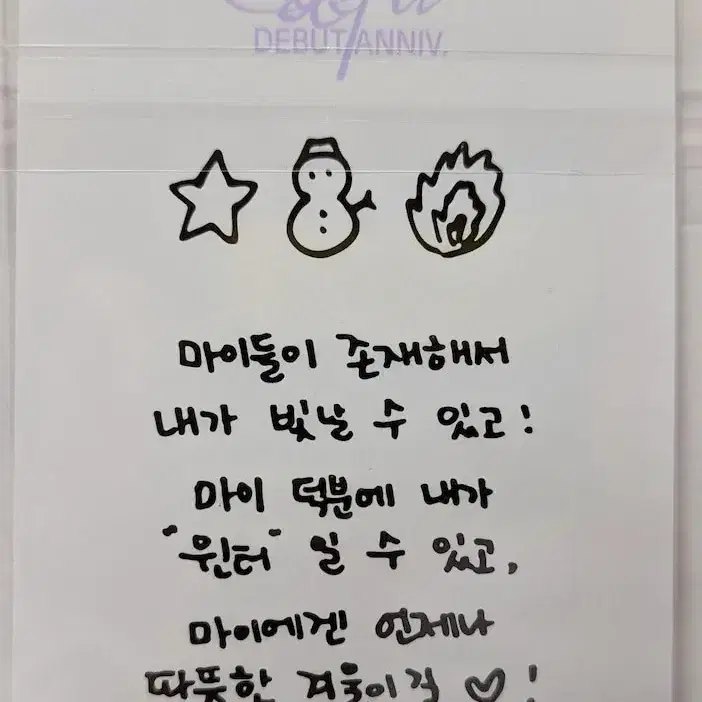 DEBUT ANNIV.
마이들이 존재해서
내가 빛날 수 있고!
마이 덕분에 내가
"윈터" 일 수 있고,
마이에겐 언제나
따뜻한 겨울이길 ♡!